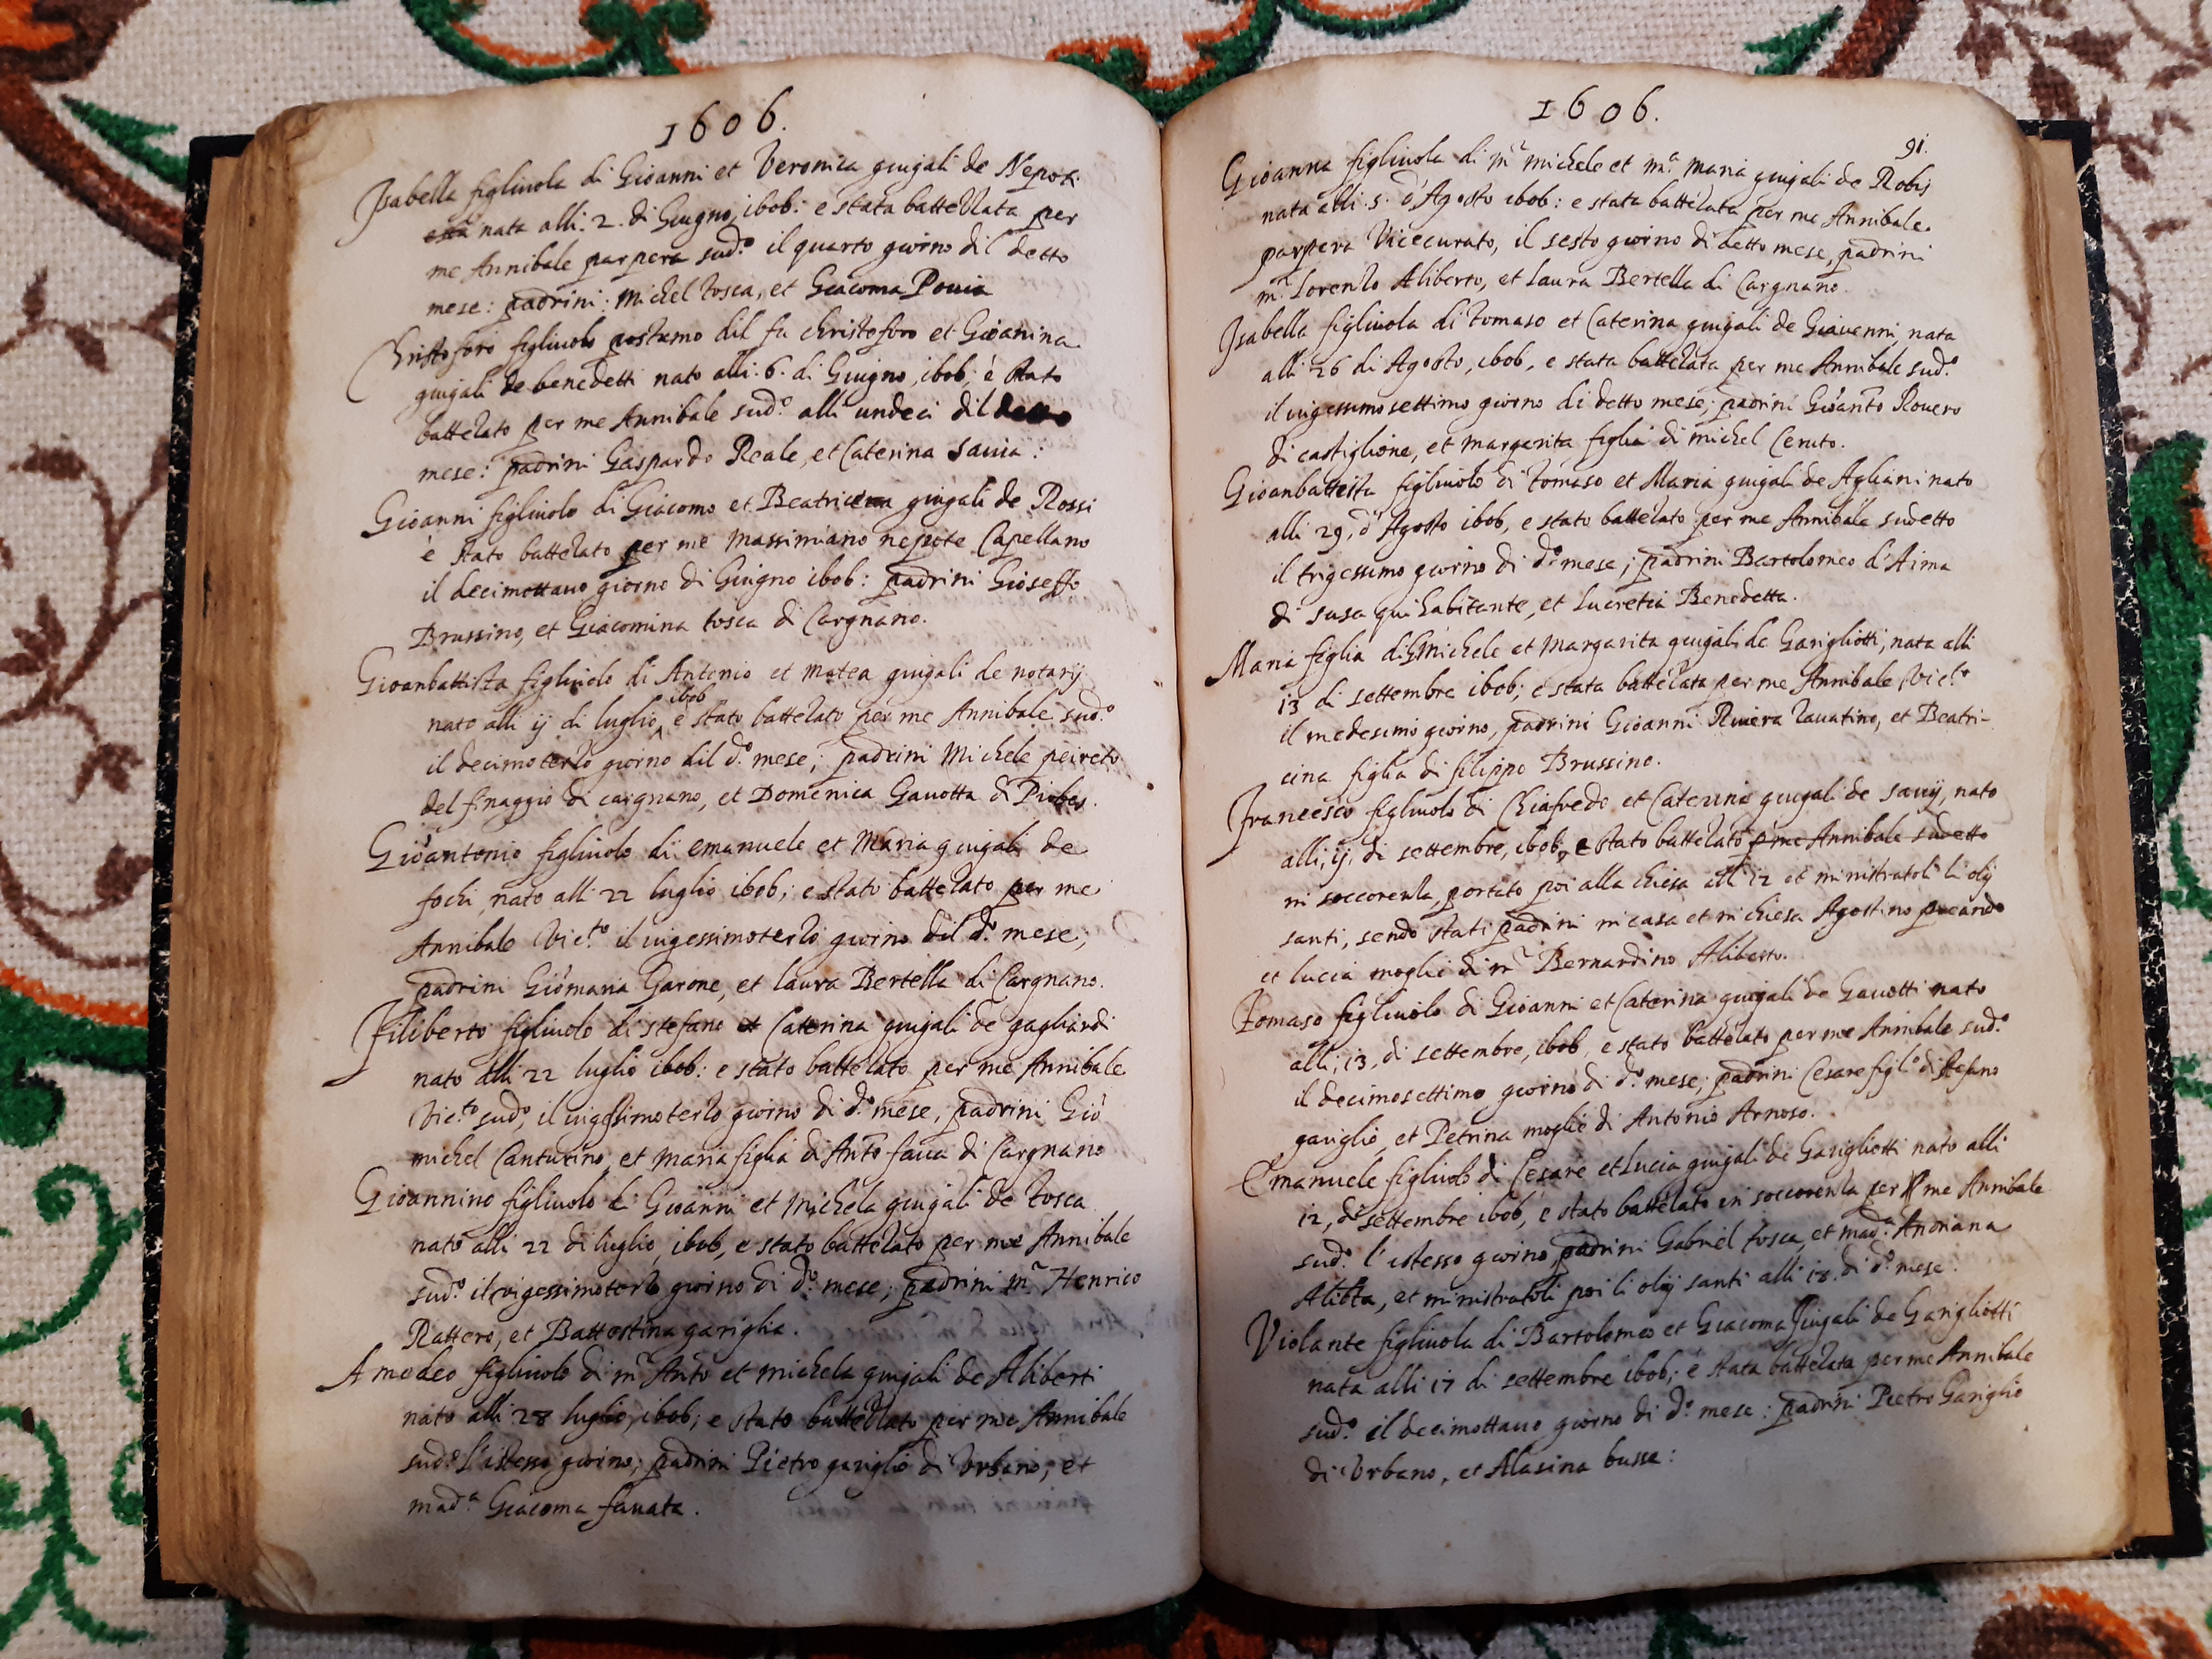 1606.
Isabella figliuola di Gioanni et Veronica giugali de Nepoti
nata alli. 2. di Giugno, ibob: e stata battezzata per
me Annibale parpera sud.º il quarto giorno dil detto
mese: padrini: Michel tosca, et Giacoma Pouia
Christoforo figliuolo postumo dil fu christoforo et Gioanina
giugali de benedetti nato alli. 6. di Giugno, ibob; è stato
battezato per me Annibale sud.º alli undeci dil detto
mese: padrini Gaspardo Reale, et Caterina sauia:
Gioanni figliuolo di Giacomo et Beatricina giugali de Rossi
è stato battezato per me Massimiano nepote Capellano
il decimottauo giorno di Giugno ibob: padrini Gioseffo
Brussino, et Giacomina tosca di Cargnano.
Gioanbattista figliuolo di Antonio et Matea giugali de notarij
nato alli ij di luglio ibob e stato battezato per me Annibale sud.º
il decimoterzo giorno dil d.º mese; padrini Michele peireto
del finaggio di cargnano, et Domenica Gauotta di Piobes.
Gioantonio figliuolo di emanuele et Maria giugali de
fochi, nato alli 22 luglio ibob; e stato battezato per me
Annibale Vic.to il uigessimoterzo giorno dil d.º mese;
padrini Giomaria Garone, et laura Bertella di Cargnano.
Filiberto figliuolo di stefano et Caterina giugali de gagliardi
nato alli 22 luglio ibob: e stato battezato per me Annibale
Vic.to sud.º, il uigessimoterzo giorno di d.º mese, padrini Gio
michel Canturino, et Maria figlia di Anto faua di Cargnano
Gioannino figliuolo di Gioanni et Michela giugali de tosca
nato alli 22 di luglio, ibob, e stato battezato per me Annibale
sud.º il uigessimoterzo giorno di d.º mese; padrini m.r Henrico
Rattero, et Battestina gariglia.
Amedeo figliuolo di m.r Anto et Michela giugali de Aliberti
nato alli 28 luglio, ibob; e stato battezzato per me Annibale
sud.º l'istesso giorno; padrini Pietro gariglio di Vrbano, et
mad.a Giacoma fauata.
1606.
91.
Gioanna figliuola di m.r Michele et m.a Maria giugali de Robis
nata alli. 5. d'Agosto ibob: e stata battezata per me Annibale
parpera Vicecurato, il sesto giorno di detto mese, padrini
m.r Lorenzo Aliberto, et Laura Bertella di Cargnano.
Isabella figliuola di tomaso et Caterina giugali de Giauenni, nata
alli 26 di Agosto, ibob, e stata battezata per me Annibale sud.º
il uigessimosettimo giorno di detto mese; padrini Gioanto Rouero
di castiglione, et margarita figlia di michel Ceruto.
Gioanbattista figliuolo di tomaso et Maria giugali de Agliani nato
alli 29, d'Agosto ibob, e stato battezato per me Annibale sudetto
il trigessimo giorno di d.º mese; padrini Bartolomeo d'Aima
di susa qui habitante, et Lucretia Benedetta.
Maria figlia di Michele et Margarita giugali de Garigliotti, nata alli
13 di settembre ibob; e stata battezata per me Annibale Vic.to
il medesimo giorno, padrini Gioanni Riuera Zauatino, et Beatri-
cina figlia di filippo Brussino.
Francesco figliuolo di Chiafredo et Caterina giugali de sauij, nato
alli, ij, di settembre, ibob, e stato battezato p me Annibale sudetto
in soccorenza, portato poi alla chiesa alli 12 et ministratoli li olij
santi, sendo stati padrini in casa et in chiesa Agostino picardo
et lucia moglie di m.r Bernardino Aliberto.
Tomaso figliuolo di Gioanni et Caterina giugali de Gauotti nato
alli, 13, di settembre, ibob, e stato battezato per me Annibale sud.º
il decimosettimo giorno di d.º mese; padrini Cesare figl.º di stefano
gariglio, et Petrina moglie di Antonio Arnoso.
Emanuele figliuolo di Cesare et Lucia giugali de Garigliotti nato alli
12, di settembre ibob, e stato battezato in soccorenza per me Annibale
sud.º l'istesso giorno, padrini Gabriel tosca, et mad.a Andriana
Aliberta, et ministratoli poi li olij santi alli 18. di d.º mese.
Violante figliuola di Bartolomeo et Giacoma giugali de Garigliotti
nata alli 17 di settembre ibob; è stata battezata per me Annibale
sud.º il decimottauo giorno di d.º mese: padrini Pietro Gariglio
di Vrbano, et Alasina busse: